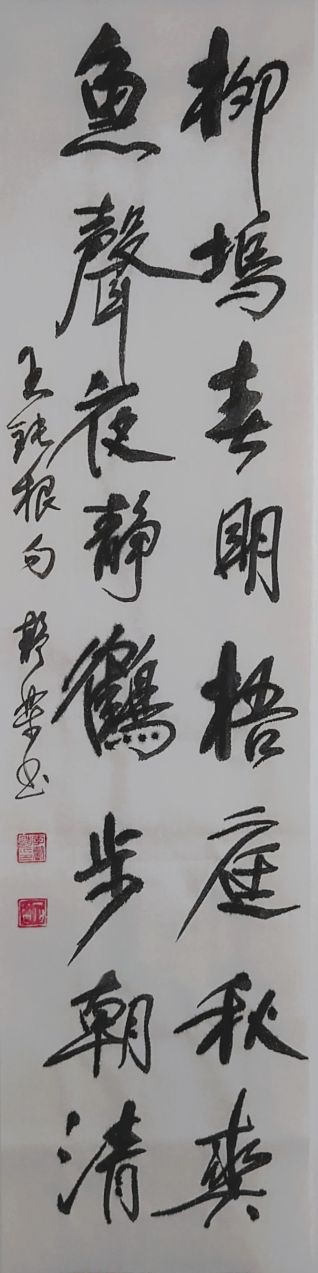 柳塢春明梧庭秋爽
魚聲夜静鶴步朝清
王鈍根句 書